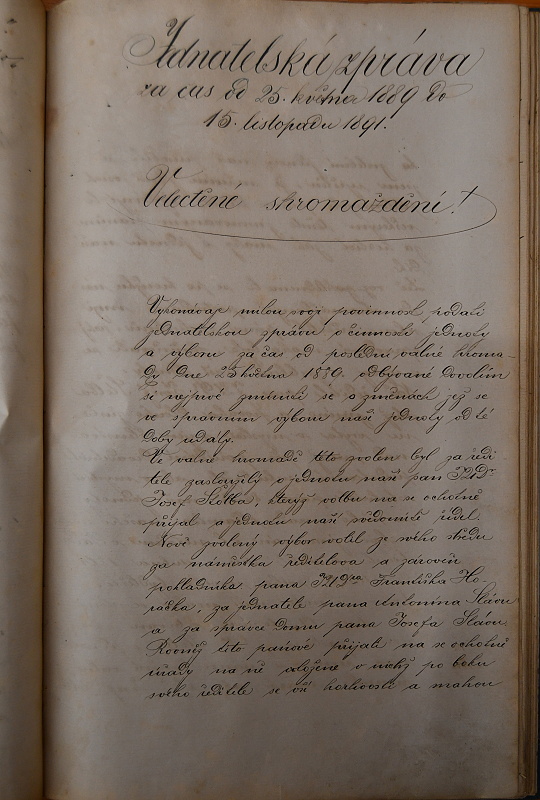 Jednatelská zpráva
za čas od 25. května 1889 do
15. listopadu 1891.
Velectěné shromáždění!
Vykonávaje milou svoji povinnost podati
jednatelskou zprávu o činnosti jednoty
a výboru za čas od poslední valné hroma-
dy dne 25 května 1889. odbývané dovolím
si nejprvé zmíniti se o změnách jež se
ve správním výboru naší jednoty od té
doby udály.
Ve valné hromadě této zvolen byl za ředi
tele zasloužilý o jednotu naši pan JUDr
Josef Štolba, kterýž volbu na se ochotně
přijal a jednotu naši svědomitě řídil.
Nově zvolený výbor volil ze svého středu
za náměstka ředitelova a zároveň
pokladníka pana JUDra Františka Ho-
ráčka, za jednatele pana Antonína Slávu
a za správce domu pana Josefa Slávu.
Rovněž tito pánové přijali na se ochotně
úřady na ně vložené v nichž po boku
svého ředitele se vší horlivostí a snahou